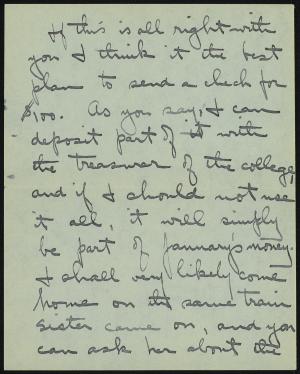 If this is all right with
you I think it the best
plan to send a check for
$100. As you say, I can
deposit part of it with
the treasurer of the college,
and if I should not use
it all, it will simply
be part of January's money.
I shall very likely come
home on the same train
Sister came on, and you
can ask her about the